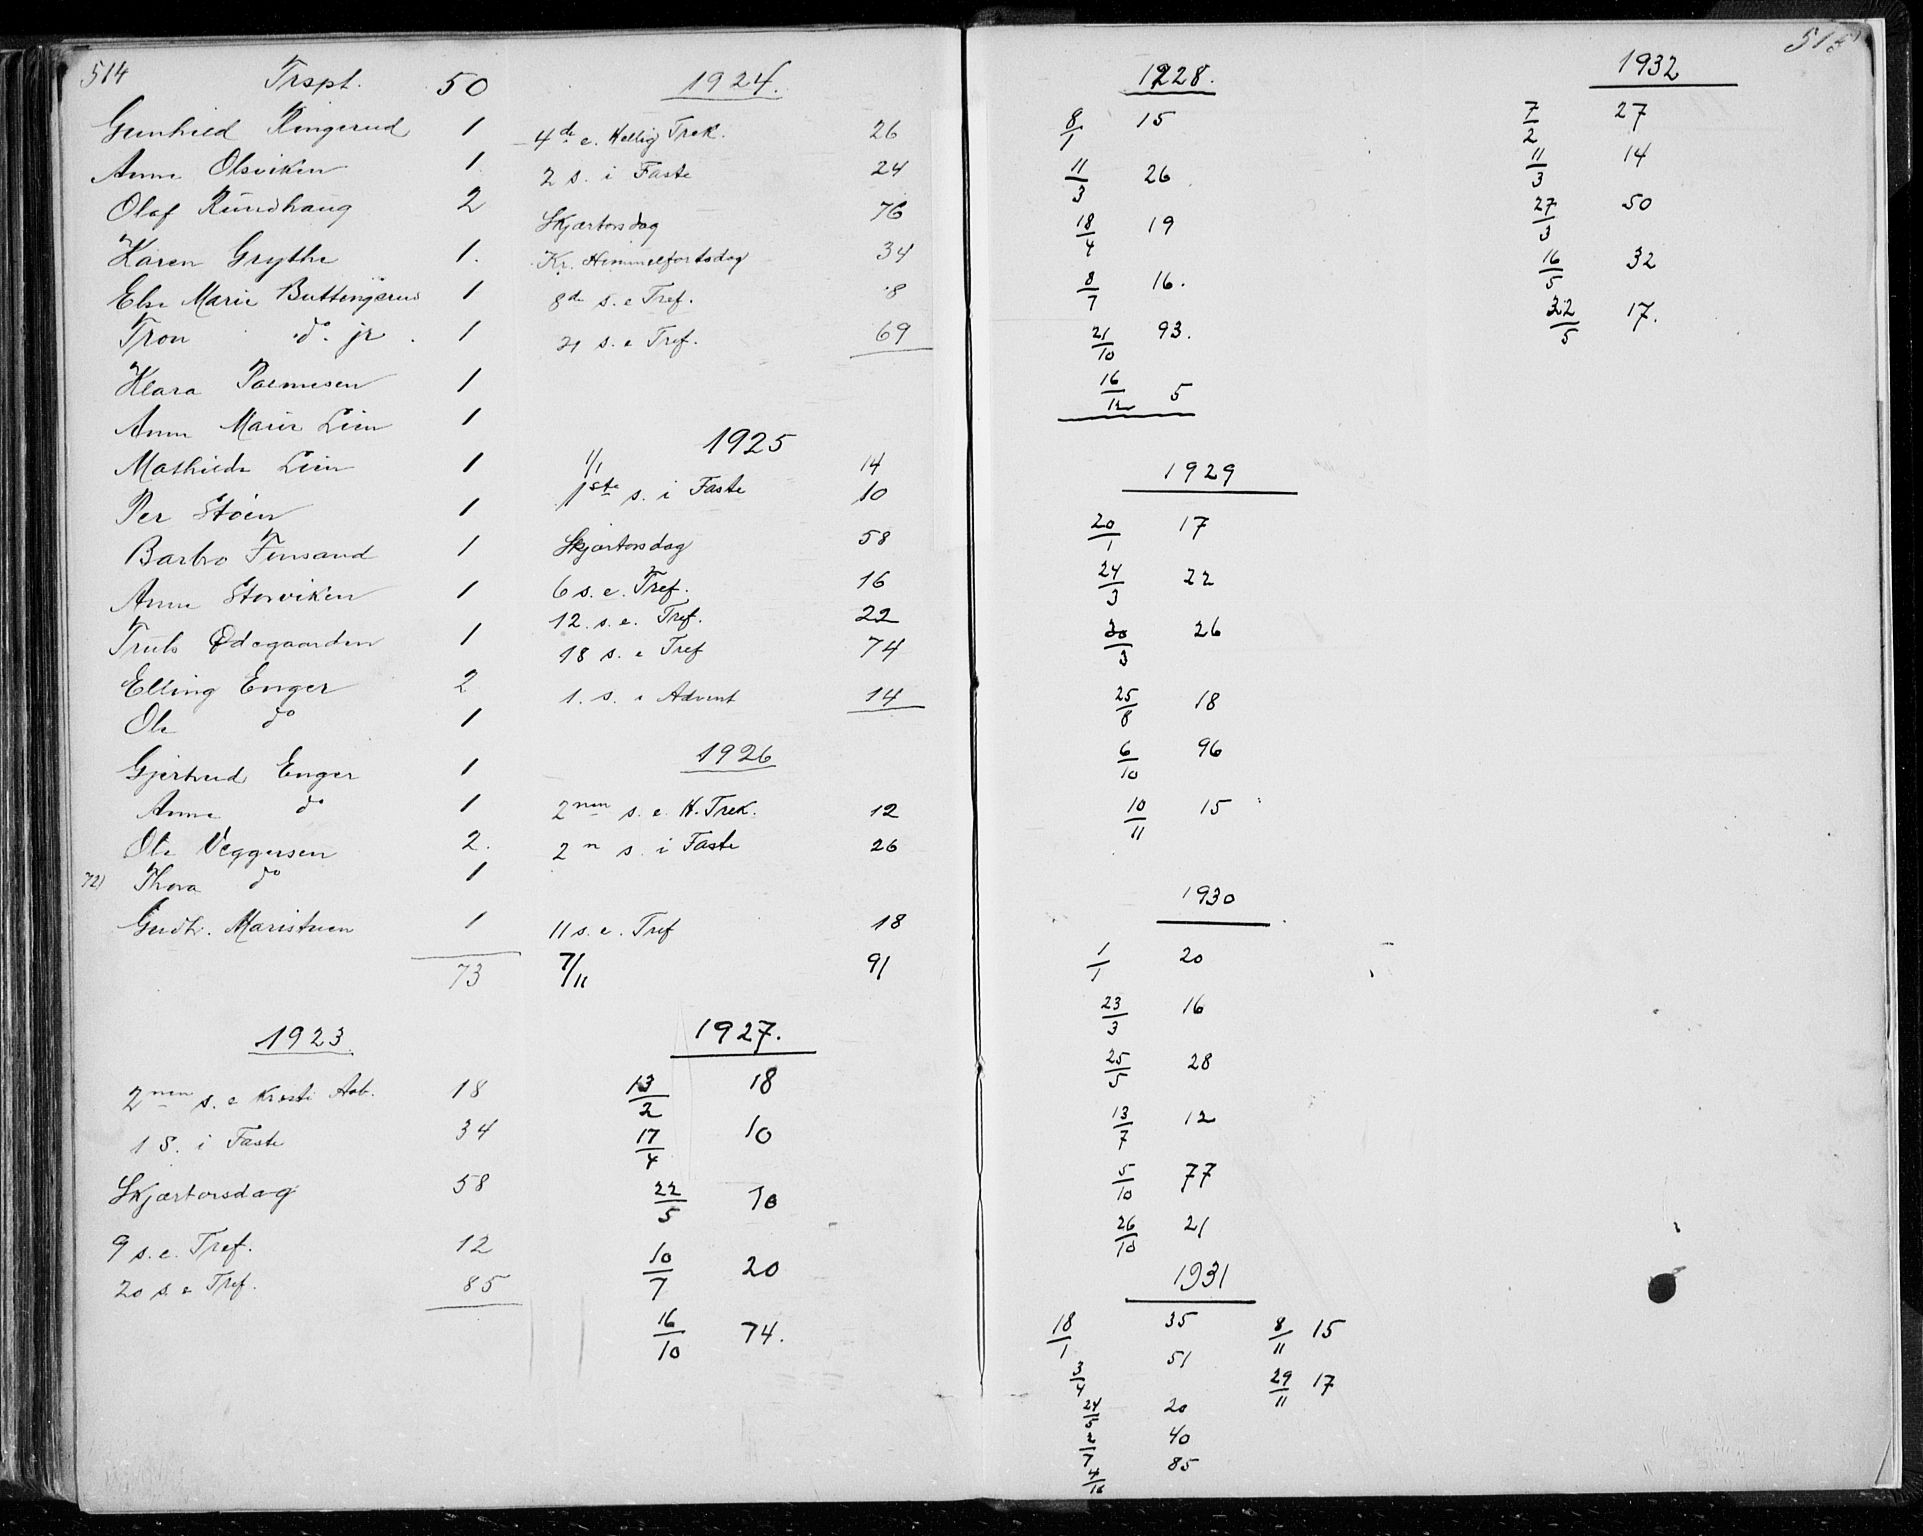 514
Trspt. 50
Gunhild Ringerud 1
Anne Olsviken 1
Olaf Rundhaug 2
Karen Grythe 1.
Else Marie Buttingsrud 1
Tron do. jr. 1
Klara Paemesen 1
Anne Marie Lien 1
Mathilde Lien 1
Per Støen 1
Barbro Finsand 1
Anne Storviken 1
Truls Ødegaarden 1
Elling Enger 2
Ole do 1
Gjertrud Enger 1
Anne do 1
Ole Veggersen 2.
72) Thora do 1
Gudb. Maristuen 1
73
1923.
2nen s. e Kristi Aab. 18
1 S. i Faste 34
Skjærtorsdag 58
9 s. e. Tref. 12
20 s. e Tref. 85
1924.
4de e. Hellig Trek. 26
2 s. i Faste 24
Skjærtorsdag 76
Kr. Himmelfartsdag 34
8de s. e Tref. 8
21 s. e Tref. 69
1925
1/1 14
1ste s. i Faste 10
Skjærtorsdag 58
6 s. e. Tref. 16
12. s. e. Tref. 22
18 s. e Tref 74
1. s. i Advent 14
1926
2nen s. e. H. Trek. 12
2n s. i Faste 26
11 s. e. Tref 18
7/11 91
1927.
13/2 18
17/4 10
22/5 10
10/7 20
16/10 74.
515
1928.
8/1 15
11/3 26
18/4 19
8/7 16.
21/10 93.
16/12 5
1929
20/1 17
24/3 22
30/3 26
25/8 18
6/10 96
10/11 15
1930
1/1 20
23/3 16
25/5 28
13/7 12
5/10 77
26/10 21
1931
18/1 35
3/4 51
24/5 20
2/7 40
4/10 85
8/11 15
29/11 17
1932
7/2 27
11/3 14
27/3 50
16/5 32
22/5 17.